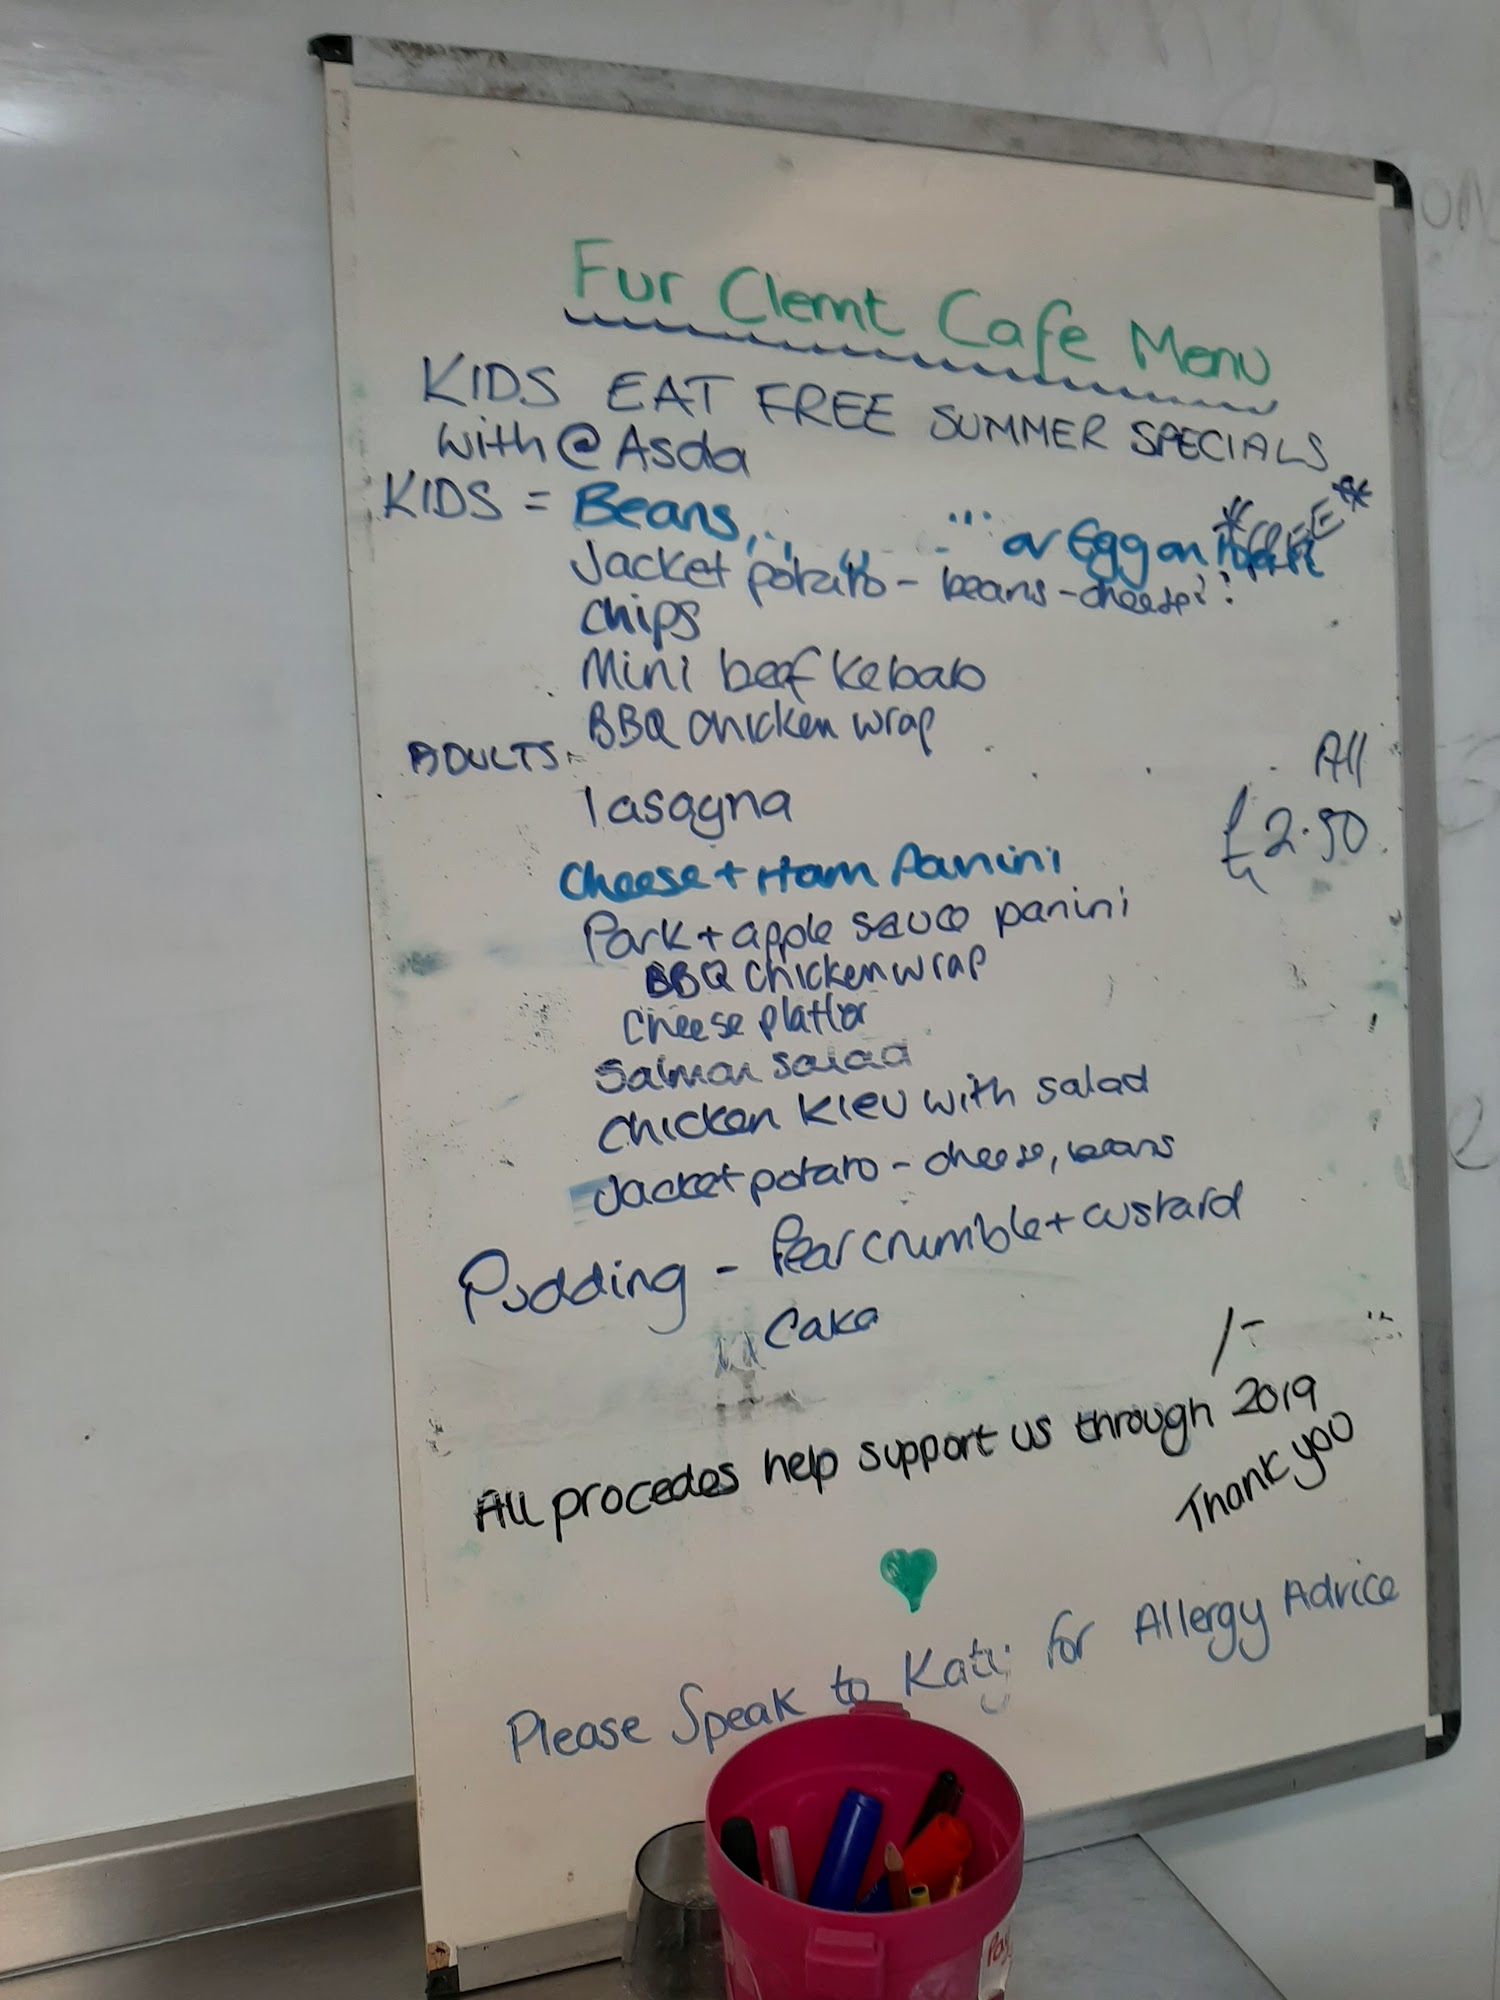 Fur Clemt Cafe Menu
KIDS EAT FREE SUMMER SPECIALS
with @ Asda
KIDS = Beans,... ...or Egg on *FREE*
Jacket potato - beans - cheese
Chips
Mini beef kebab
BBQ chicken wrap
ADULTS =
All
lasagna
£2.50
Cheese + Ham Panini
Pork + apple sauce panini
BBQ chicken wrap
Cheese platter
Salmon salad
Chicken Kiev with salad
Jacket potato - cheese, beans
Pudding - Pear crumble + custard
Cake
/-
All procedes help support us through 2019
Thank you
Please Speak to Katy for Allergy Advice